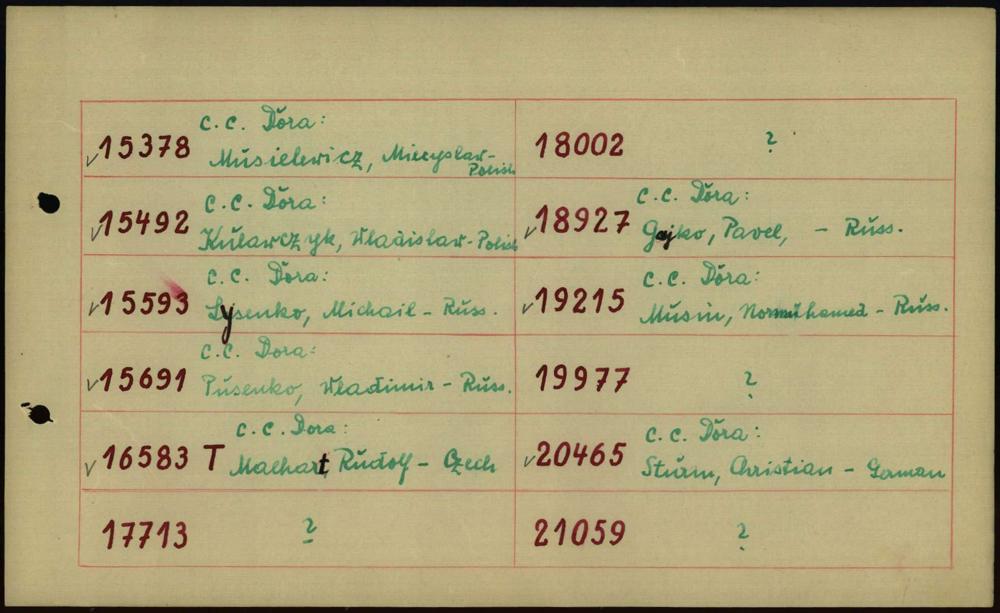 c.c. Dora:
✓15378 Musielewicz, Miecyslaw-
Polish
c.c. Dora:
✓15492 Kularczyk, Wladislaw-Polish
c.c. Dora:
✓15593 Lysenko, Michail - Russ.
c.c. Dora:
✓15691 Pusenko, Wladimir - Russ.
c.c. Dora:
✓16583 T Machart, Rudolf - Czech
17713 ?
18002 ?
c.c. Dora:
✓18927 Gajko, Pavel, - Russ.
c.c. Dora:
✓19215 Musin, Normuhamed - Russ.
19977 ?
c.c. Dora:
✓20465 Sturm, Christian - German
21059 ?